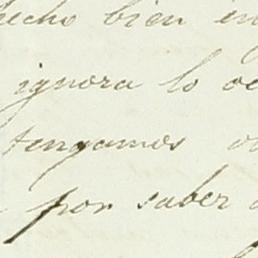 hecho bien
ignora lo
tengamos
por saber